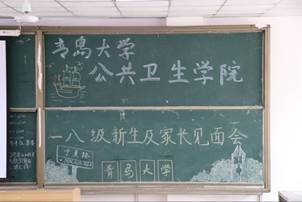 青岛大学
公共卫生学院
一八级新生及家长见面会
青岛大学